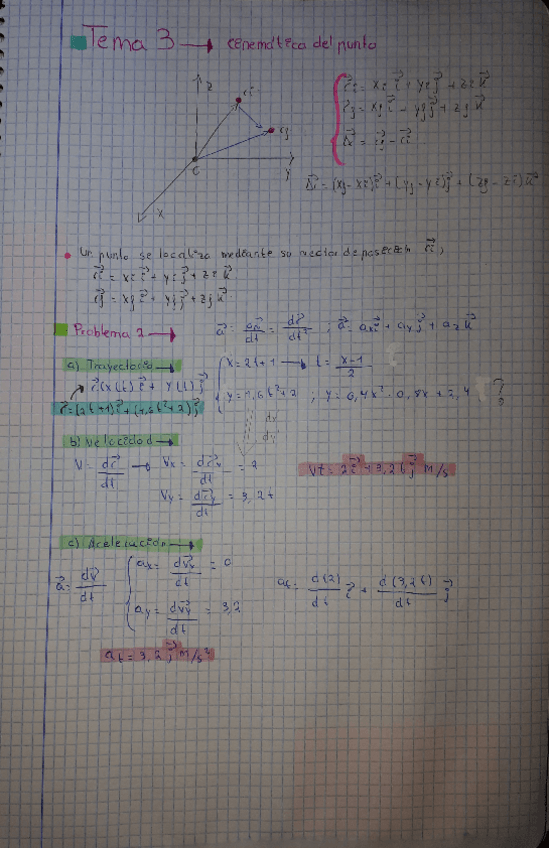 Tema 3 → cenemática del punto
z
ri
rj
O
y
x
r⃗i = xi i⃗ + yi j⃗ + zi k⃗
r⃗j = xj i⃗ + yj j⃗ + zj k⃗
Δr⃗ = r⃗j - r⃗i
Δr⃗ = (xj - xi) i⃗ + (yj - yi) j⃗ + (zj - zi) k⃗
• Un punto se localiza mediante su vector de posición r⃗i,
r⃗i = xi i⃗ + yi j⃗ + zi k⃗
r⃗j = xj i⃗ + yj j⃗ + zj k⃗
Problema 2 → a⃗ = dv⃗/dt = dr⃗/dt² ; a⃗ = ax i⃗ + ay j⃗ + az k⃗
a) Trayectoria →
r⃗(x(t) i⃗ + y(t) j⃗
r⃗ = (2t+1) i⃗ + (1,6t²+2) j⃗
x = 2t+1 → t = (x-1)/2
y = 1,6t²+2 ; y = 0,4x² - 0,8x + 2,4 ?
b) Velocidad →
V = dr⃗/dt → Vx = dr⃗x/dt = 2
Vy = dr⃗y/dt = 3,2t
Vt = 2i⃗ + 3,2t j⃗ m/s
c) Aceleración →
a⃗ = dv⃗/dt
ax = dv⃗x/dt = 0
ay = dv⃗y/dt = 3,2
at = d(2)/dt i⃗ + d(3,2t)/dt j⃗
at = 3,2 j⃗ m/s²